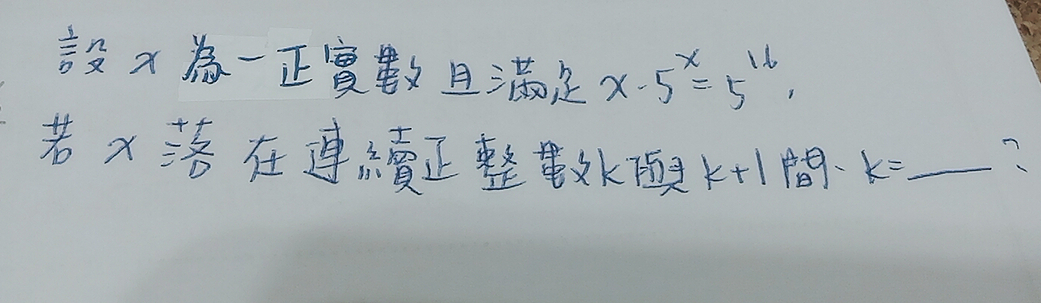 設 x 為一正實數且滿足 x·5^x=5^16,
若 x 落在連續正整數k與k+1間、k=___?